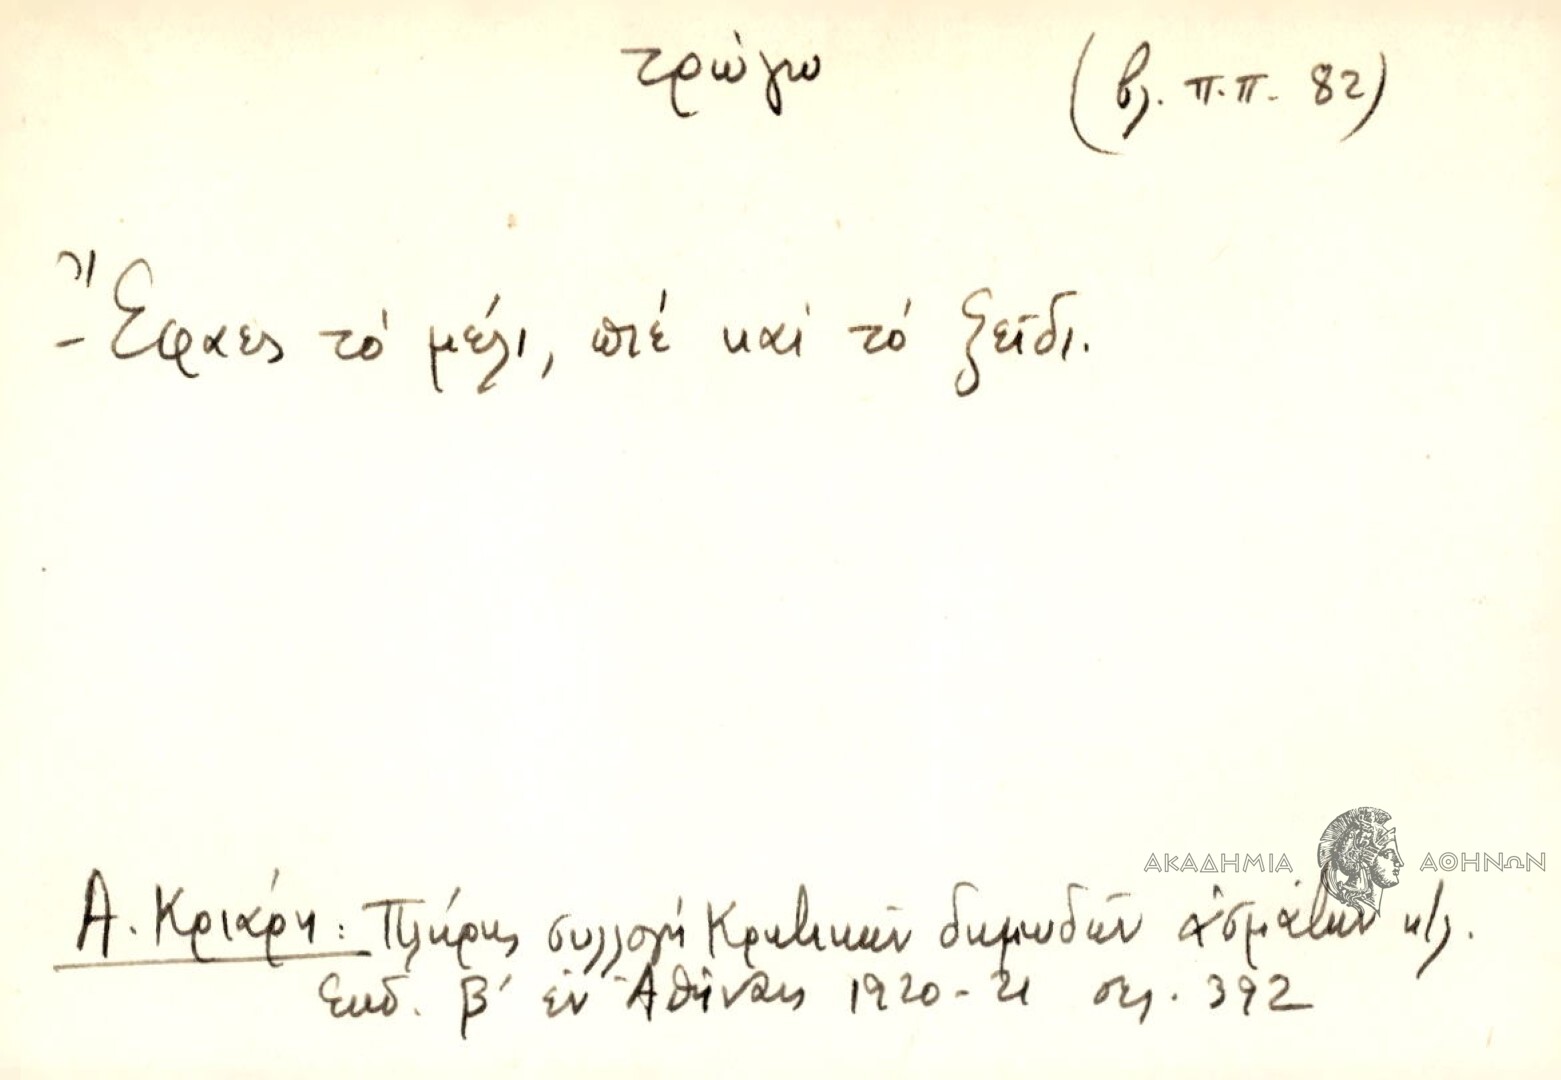 τρώγω (βλ. π.π. 82)
- Ἔφαες τό μέλι, πιέ καί τό ξεῖδι.
ΑΚΑΔΗΜΙΑ ΑΘΗΝΩΝ
Α. Κριάρη: Πλήρης συλλογή Κρητικῶν δημωδῶν ἀσμάτων κτλ.
Ἔκδ. β' ἐν Ἀθήναις 1920-21 σελ. 392